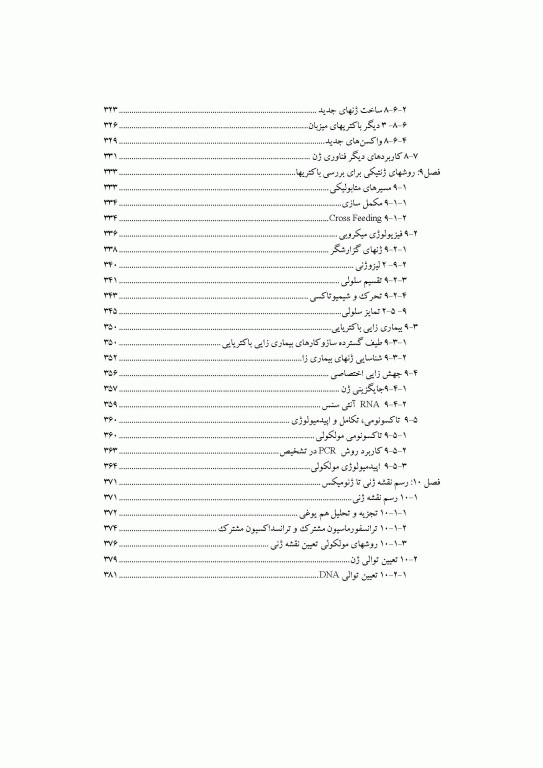 ۸-۶-۲ ساخت ژنهای جدید ........ ۳۲۳
۸-۶- ۳ دیگر باکتریهای میزبان ........ ۳۲۶
۸-۶-۴ واکسن‌های جدید ........ ۳۲۹
۸-۷ کاربردهای دیگر فناوری ژن ........ ۳۳۱
فصل۹: روشهای ژنتیکی برای بررسی باکتریها ........ ۳۳۳
۹-۱ مسیرهای متابولیکی ........ ۳۳۳
۹-۱-۱ مکمل سازی ........ ۳۳۴
۹-۱-۲ Cross Feeding ........ ۳۳۴
۹-۲ فیزیولوژی میکروبی ........ ۳۳۶
۹-۲-۱ ژنهای گزارشگر ........ ۳۳۸
۹-۲- ۲ لیزوژنی ........ ۳۴۰
۹-۲-۳ تقسیم سلولی ........ ۳۴۱
۹-۲-۴ تحرك و شیمیوتاکسی ........ ۳۴۳
۹- ۲-۵ تمایز سلولی ........ ۳۴۵
۹-۳ بیماری زایی باکتریایی ........ ۳۵۰
۹-۳-۱ طیف گسترده سازوکارهای بیماری زایی باکتریایی ........ ۳۵۰
۹-۳-۲ شناسایی ژنهای بیماری زا ........ ۳۵۲
۹-۴ جهش زایی اختصاصی ........ ۳۵۶
۹-۴-۱جایگزینی ژن ........ ۳۵۷
۹-۴-۲ RNA آنتی سنس ........ ۳۵۹
۹-۵ تاکسونومی، تکامل و اپیدمیولوژی ........ ۳۶۰
۹-۵-۱ تاکسونومی مولکولی ........ ۳۶۰
۹-۵-۲ کاربرد روش PCR در تشخیص ........ ۳۶۳
۹-۵-۳ اپیدمیولوژی مولکولی ........ ۳۶۴
فصل ۱۰: رسم نقشه ژنی تا ژنومیکس ........ ۳۷۱
۱۰-۱ رسم نقشه ژنی ........ ۳۷۱
۱۰-۱-۱ تجزیه و تحلیل هم یوغی ........ ۳۷۲
۱۰-۱-۲ ترانسفورماسیون مشترك و ترانسداکسیون مشترك ........ ۳۷۴
۱۰-۱-۳ روشهای مولکولی تعیین نقشه ژنی ........ ۳۷۶
۱۰-۲ تعیین توالی ژن ........ ۳۷۹
۱۰-۲-۱ تعیین توالی DNA ........ ۳۸۱